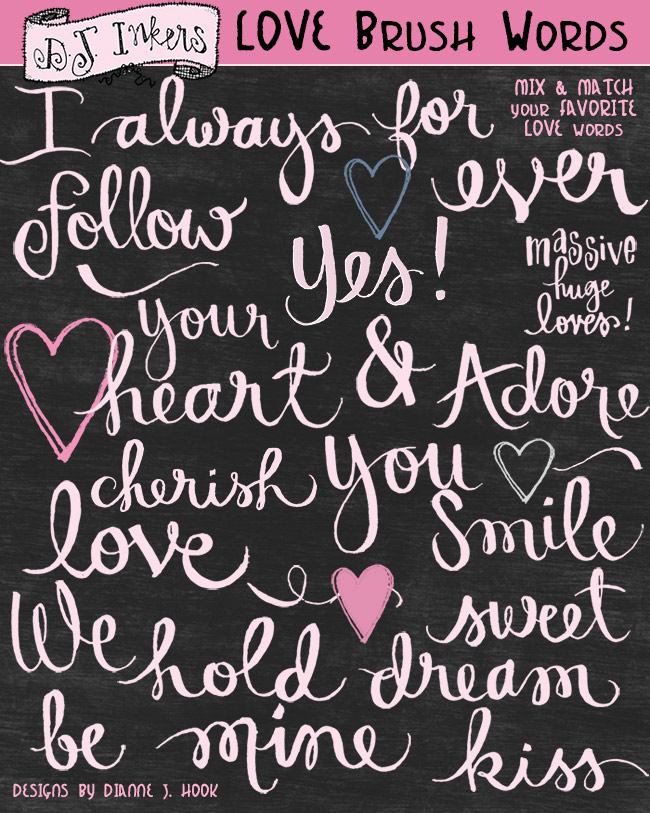 DJ Inkers
LOVE BRUSH WORDS
MIX & MATCH
YOUR FAVORITE
LOVE WORDS
I always for
ever
follow
Yes!
massive
huge
loves!
your
heart & Adore
cherish You
love Smile
We sweet
hold dream
be mine kiss
DESIGNS BY DIANNE J. HOOK